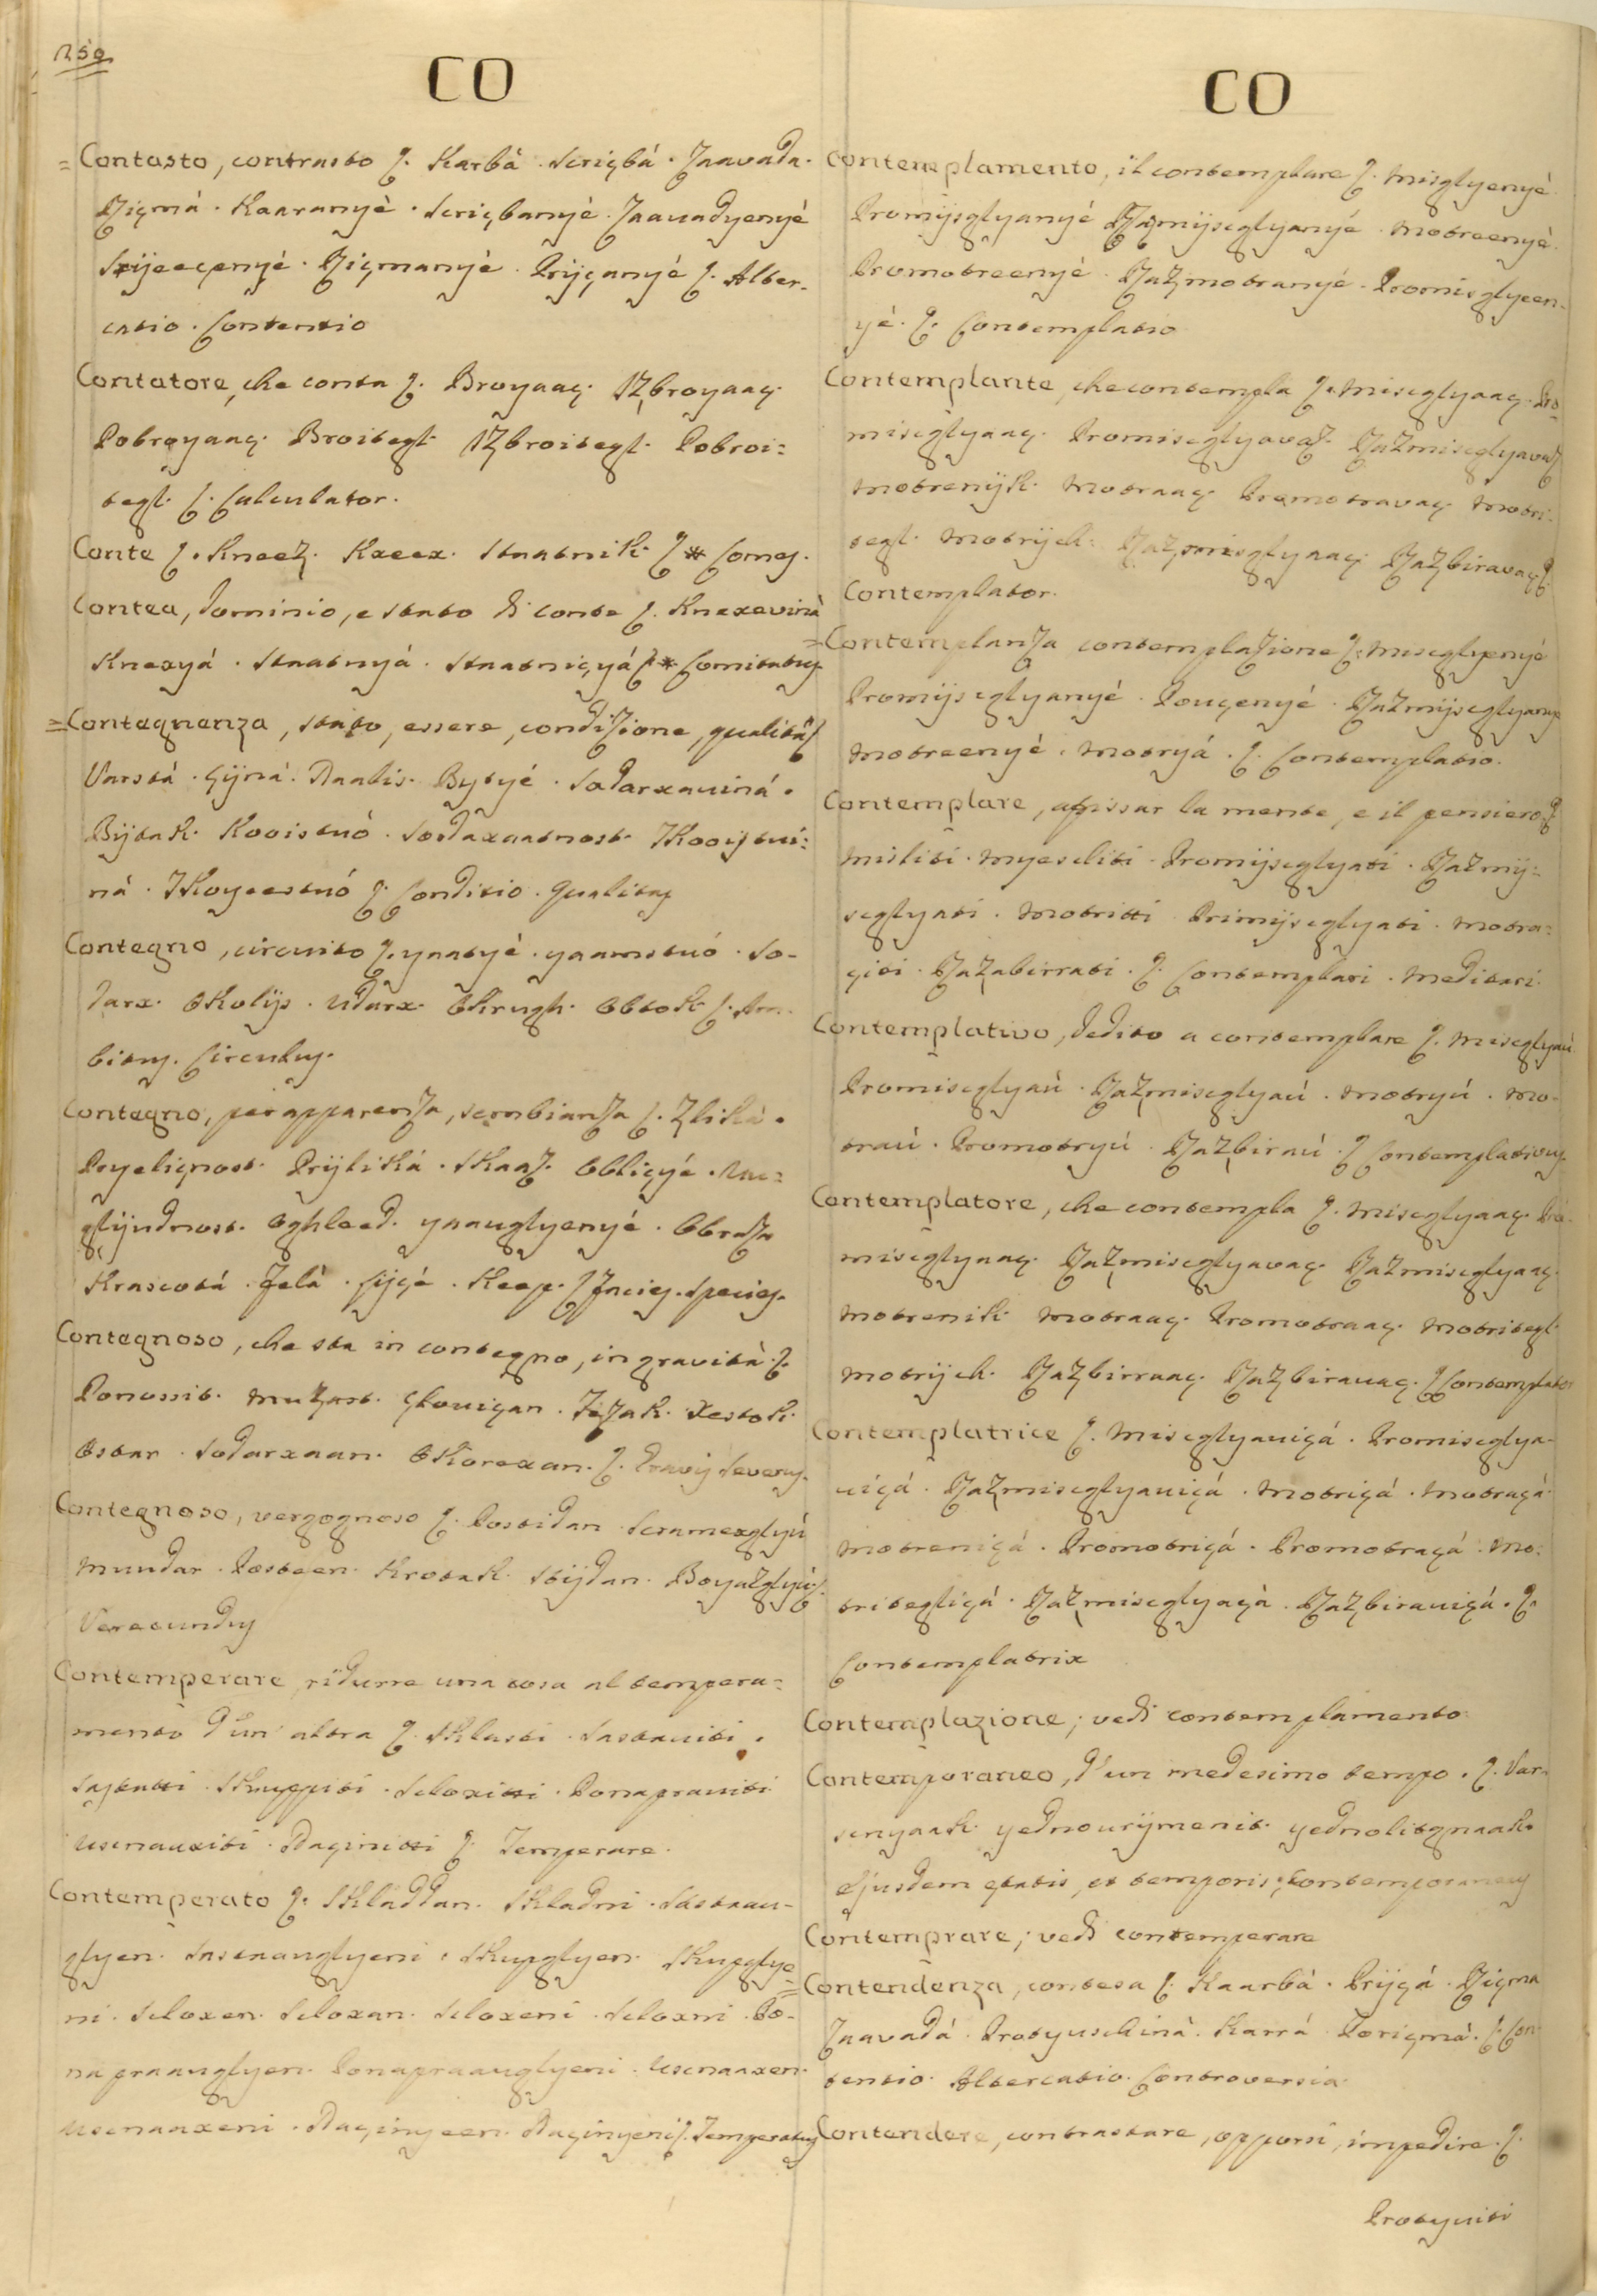 250
CO
Contasto, contrasto ſ. Karbà. Scriçbá. Zaavada.
Riçmá. Kaaranyè. Scriçbanyè. Zaavadyenyè
Sriyeeçenyè. Riçmanyè. Priyçanyé ſ. Alter-
catio. Contentio
Contatore, che conta ſ. Broyaaç. Izbroyaaç.
Pobroyaaç. Broitegl. Izbroitegl. Pobroi=
tegl. ſ. Calculator.
Conte ſ. Kneez. Kneex. Staatnik. ſ * Comes.
Contea, dominio, e stato di conte ſ. Knexavinà
Knexyá. Staatnyá. Staatniçyá ſ * Comitatus
Contegnanza, stato, essere, condizione, qualità ſ
Varstá. Çijná. Raalis. Bytyé. Sadarxaviná.
Bijtak. Kooistuó. Sodaxnatnost. Kooistui=
ná. Koyeestuó ſ. Conditio. Qualitas
Contegno, circuito ſ. yaatyè. yaamstuó. So-
darx. Okolijs. Udarx. Okrugh. Obtok ſ. Am-
bitus. Circulus.
Contegno, per apparenza, sembianza ſ. Zlikà.
Pryeliçnost. Prijliká. Skaaz. Obliçyé. Uu=
glijudnost. Oghleed. yaauglyenyé. Obraza
Krascotá. Felà. Lijçé. Keep. ſ Facies. Species.
Contegnoso, che sta in contegno, in gravità ſ.
Ponossit. Muzast. Çlouiçan. Texak. Xestok.
Ostar. Sodarxaan. Okorexan. ſ. Gravis Severus.
Contegnoso, vergognoso ſ. Postidan Scramexglyú
Muudar. Posteen. Krotak. Stijdan. Boyazglyú ſ.
Verecundus
Contemperare, ridurre una cosa al tempera=
mento d'un' altra ſ. Sklasti. Sastauiti.
Sastatti. Skuppiti. Scloxitti. Ponaprauiti
Uscnauxiti. Raçinitti ſ. Temperare.
Contemperato ſ. Skladdan. Skladni. Sastaau-
glyen. Sastaauglyeni. Skupglyen. Skupglye=
ni. Scloxen. Scloxan. Scloxeni. Scloxni. Po-
napraauglyen. Ponapraauglyeni. Uscnaaxen.
Uscnaaxeni. Raçinyeen. Raçinyeni ſ. Temperatus
CO
Contemplamento, il contemplare ſ. Misglyenyè
Promijsglyanyé Razmijseglyanyé. Motreenyè.
Promotreenyé. Razmotranyé. Promisglyeen-
yé. ſ. Contemplatio
Contemplante, che contempla ſ. Miseglyaaç. Pro=
miseglyaaç. Promiseglyavaç. Razmiseglyavaç
Motrenijk. Motraaç. Promotravaç Motri-
tegl. Motrijch. Razmisglyaaç. Razbiravaç ſ.
Contemplator.
Contemplanza contemplazione ſ. Miseglyenyé
Promijseglyanyé. Pouçenyé. Razmijseglyanye
Motreenyé. Motryá. ſ. Contemplatio.
Contemplare, afissar la mente, e il pensiero ſ
Misliti. Myescliti. Promijseglyati. Razmij=
seglyati. Motritti Primijseglyati. Motra=
çiti. Razabirrati. ſ. Contemplari. Meditari.
Contemplativo, dedito a contemplare ſ. Miseglyaú
Promiseglyaú. Razmiseglyaú. Motryú. Mo-
traú. Promotryú. Razbiraú. ſ Contemplativus.
Contemplatore, che contempla ſ. Miseglyaaç. Pro-
miseglyaaç. Razmiseglyavaç. Razmiseglyaaç.
Motrenik. Motraaç. Promotraaç. Motritegl.
Motrijch. Razbirraaç. Razbirauaç. ſ Contemplator
Contemplatrice ſ. Miseglyauiçá. Promiseglya-
uiçá. Razmiseglyauiçá. Motriçá. Motraçá.
Motreniçá. Promotriçá. Promotraçá. Mo-
tritegliçá. Razmiseglyaçà. Razbirauiçá. ſ.
Contemplatrix
Contemplazione; vedi contemplamento.
Contemporaneo, d'un medesimo tempo. ſ. Var-
snyaak yednourijmenit. yednolitgnaak.
Ejusdem ętatis, et temporis, Contemporaneus
Contemprare; vedi contemperare
Contendenza, contesa ſ. Kaarbà. Prijçá. Riçma
Zaavadá. Protyuschinà. Karrá. Poriçmá. ſ. Con-
tentio. Altercatio. Controversia.
Contendere, contrastare, opporsi, impedire. ſ.
Protyuiti